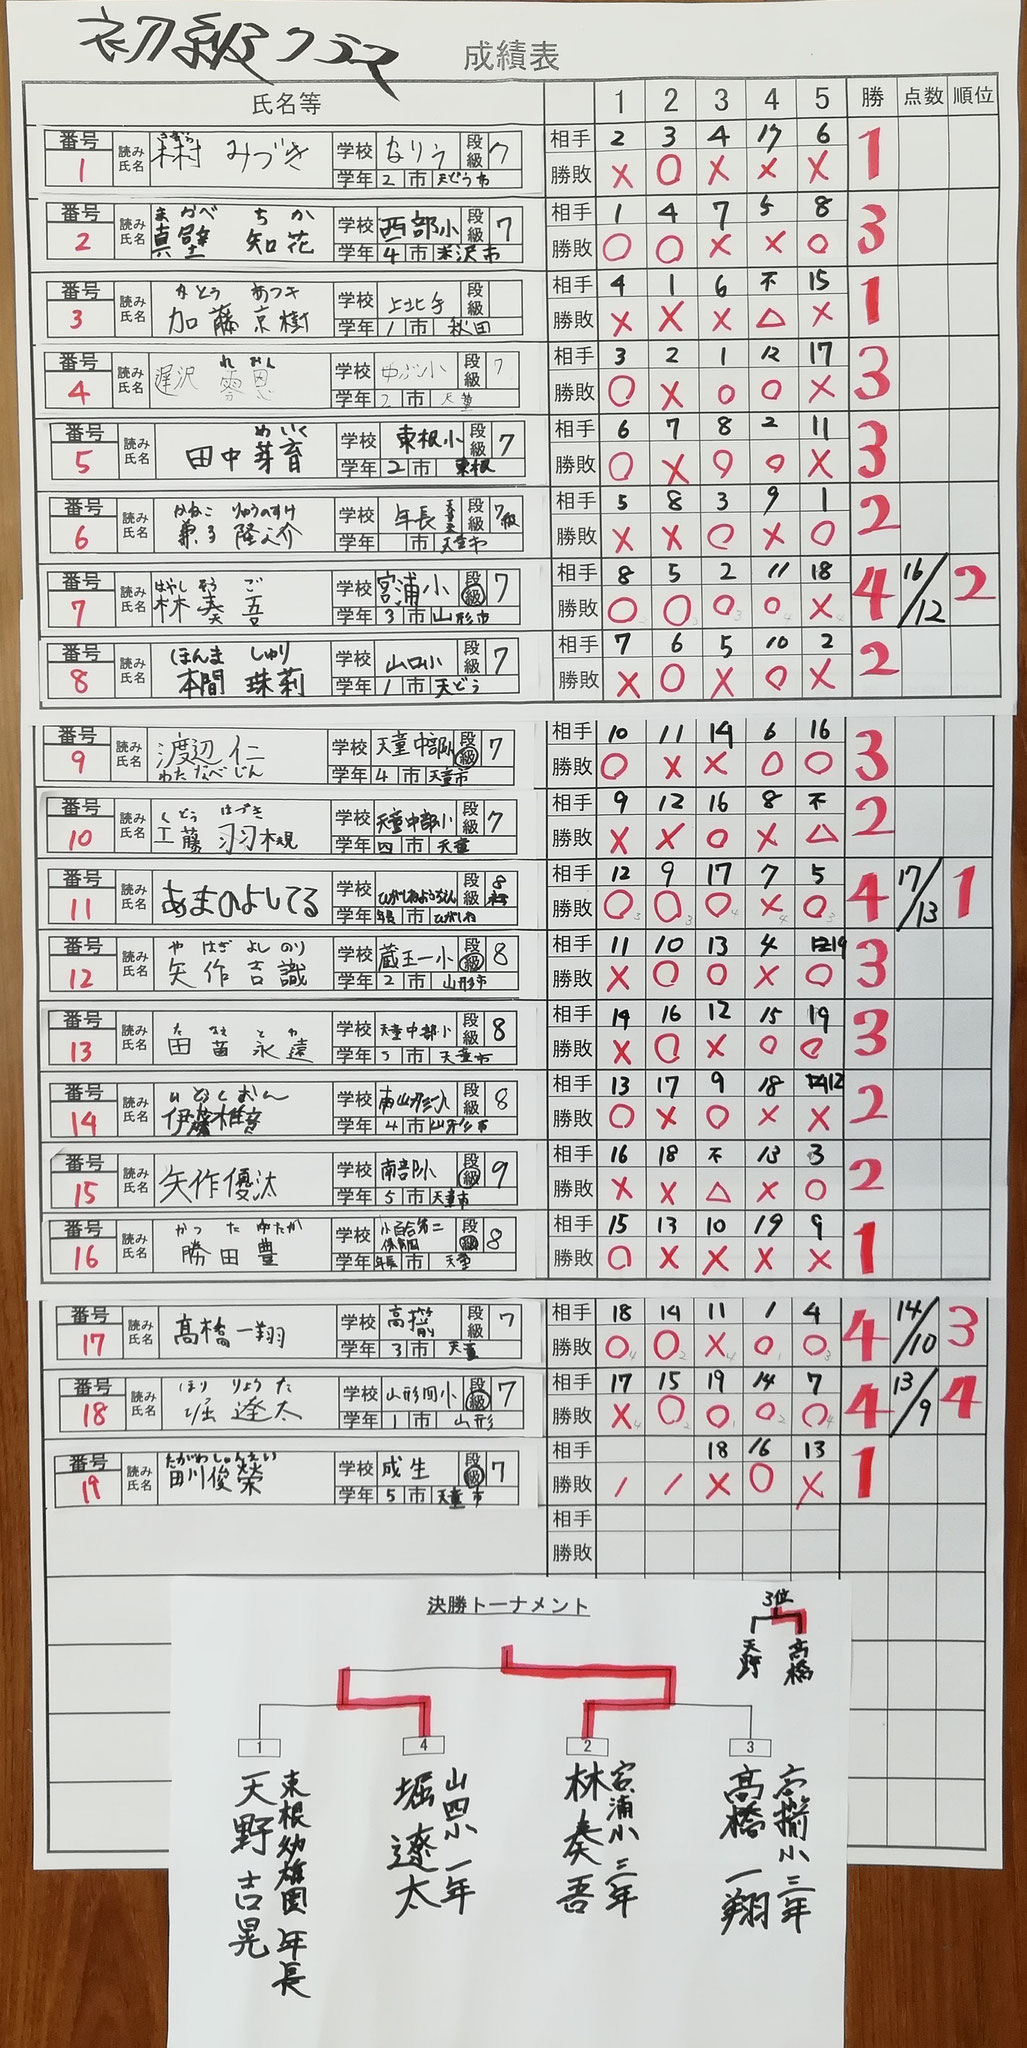 初級クラス 成績表
氏名等 1 2 3 4 5 勝 点数 順位
番号 1 読み氏名 森村 みづき 学校 なりう 段級 7 学年 2 市 天どう市
相手 2 3 4 17 6
勝敗 × ○ × × × 1
番号 2 読み氏名 まかべ ちか 真壁 知花 学校 西部小 段級 7 学年 4 市 米沢市
相手 1 4 7 5 8
勝敗 ○ ○ × × ○ 3
番号 3 読み氏名 かとう あつき 加藤 京樹 学校 上北手 段級 学年 1 市 秋田
相手 4 1 6 不 15
勝敗 × × × △ × 1
番号 4 読み氏名 れおん 遅沢 零恩 学校 中ぶ小 段級 7 学年 2 市 天童
相手 3 2 1 12 17
勝敗 ○ × ○ ○ × 3
番号 5 読み氏名 めいく 田中芽育 学校 東根小 段級 7 学年 2 市 東根
相手 6 7 8 2 11
勝敗 ○ × ○ ○ × 3
番号 6 読み氏名 かねこ りゅうのすけ 兼子 隆之介 学校 年長 段級 7級 学年 市 天童市
相手 5 8 3 9 1
勝敗 × × ○ × ○ 2
番号 7 読み氏名 はやし そう ご 林 奏 吾 学校 宮浦小 段級 7 学年 3 市 山形市
相手 8 5 2 11 18
勝敗 ○ ○ ○ ○ × 4 16/12 2
番号 8 読み氏名 ほんま しゅり 本間 珠莉 学校 山口小 段級 7 学年 1 市 天どう
相手 7 6 5 10 2
勝敗 × ○ × ○ × 2
番号 9 読み氏名 渡辺 仁 わたなべじん 学校 天童中部小 段級 7 学年 4 市 天童市
相手 10 11 14 6 16
勝敗 ○ × × ○ ○ 3
番号 10 読み氏名 くどう はづき 工藤 羽槻 学校 天童中部小 段級 7 学年 四 市 天童
相手 9 12 16 8 不
勝敗 × × ○ × △ 2
番号 11 読み氏名 あまのよしてる 学校 ひがしねようちえん 段級 8 学年 年長 市 ひがしね
相手 12 9 17 7 5
勝敗 ○ ○ ○ × ○ 4 17/13 1
番号 12 読み氏名 や はぎ よし のり 矢 作 吉 識 学校 蔵王一小 段級 8 学年 2 市 山形市
相手 11 10 13 4 19
勝敗 × ○ ○ × ○ 3
番号 13 読み氏名 た なえ と わ 田 苗 永 遠 学校 天童中部小 段級 8 学年 5 市 天童市
相手 14 16 12 15 19
勝敗 × ○ × ○ ○ 3
番号 14 読み氏名 いとうくおん 伊藤 学校 南山形小 段級 8 学年 4 市 山形市
相手 13 17 9 18 12
勝敗 ○ × ○ × × 2
番号 15 読み氏名 矢作優汰 学校 南部小 段級 9 学年 5 市 天童市
相手 16 18 不 13 3
勝敗 × × △ × ○ 2
番号 16 読み氏名 かつ た ゆたか 勝 田 豊 学校 小百合第二保育園 段級 8 学年 年長 市 天童
相手 15 13 10 19 9
勝敗 ○ × × × × 1
番号 17 読み氏名 髙橋 一翔 学校 高擶 段級 7 学年 3 市 天童
相手 18 14 11 1 4
勝敗 ○ ○ × ○ ○ 4 14/10 3
番号 18 読み氏名 ほり りょうた 堀 遼太 学校 山形四小 段級 7 学年 1 市 山形
相手 17 15 19 14 7
勝敗 × ○ ○ ○ ○ 4 13/9 4
番号 19 読み氏名 たがわしゅんえい 田川俊榮 学校 成生 段級 7 学年 5 市 天童市
相手 18 16 13
勝敗 / / × ○ × 1
相手
勝敗
決勝トーナメント
3位
天野 高橋
1 4 2 3
東根幼稚園 年長
天野 吉晃
山四小 一年
堀 遼太
宮浦小 三年
林 奏吾
高擶小 三年
髙橋 一翔